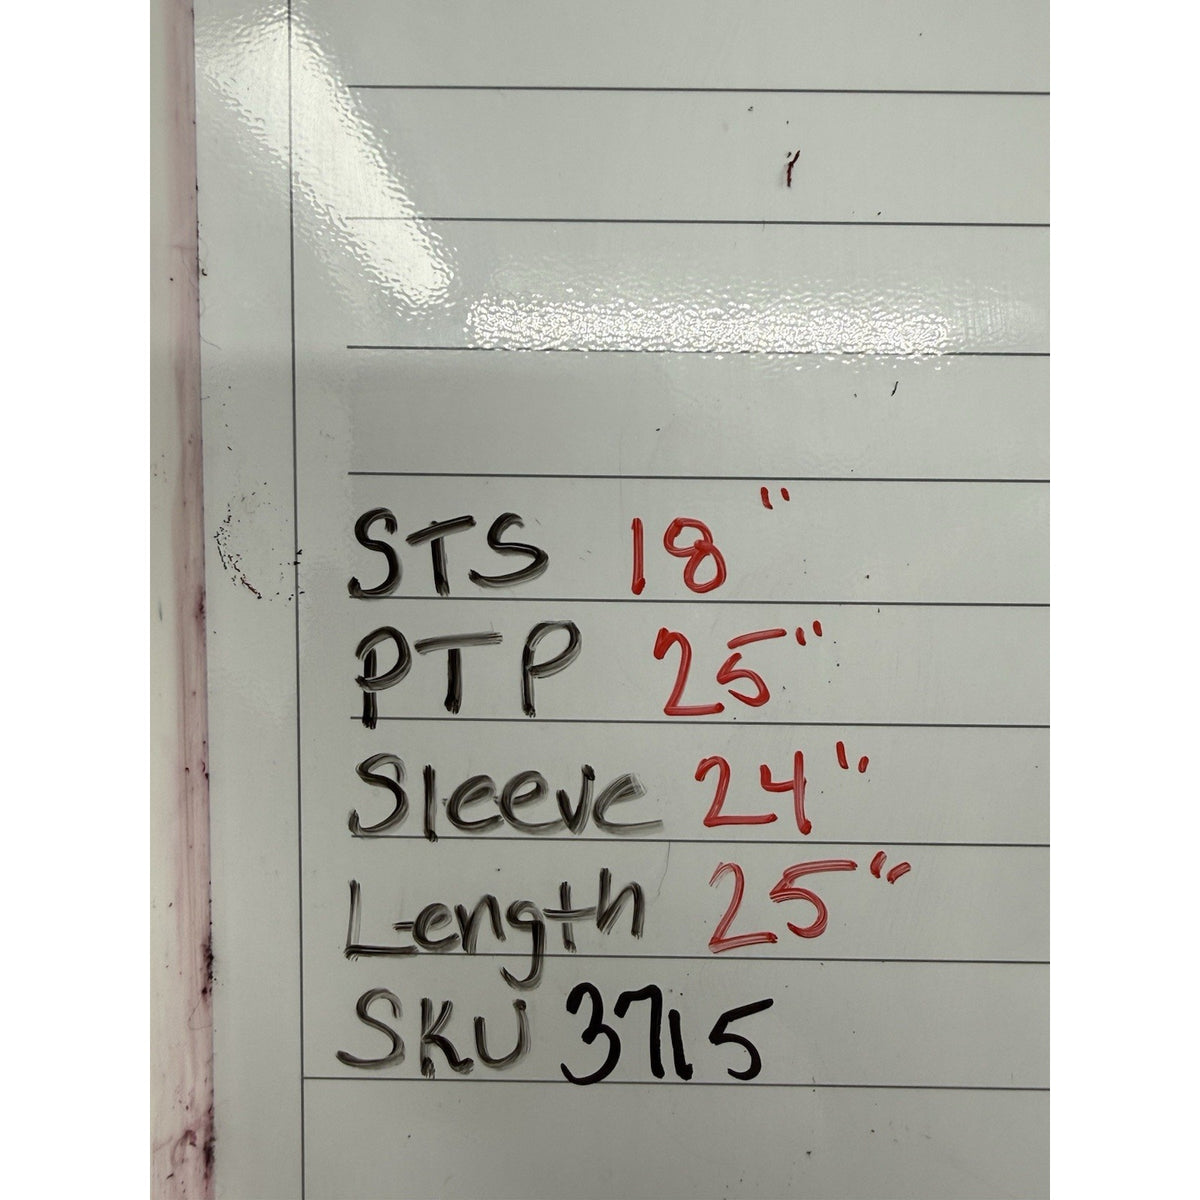 STS 18"
PTP 25"
Sleeve 24"
Length 25"
SKU 3715